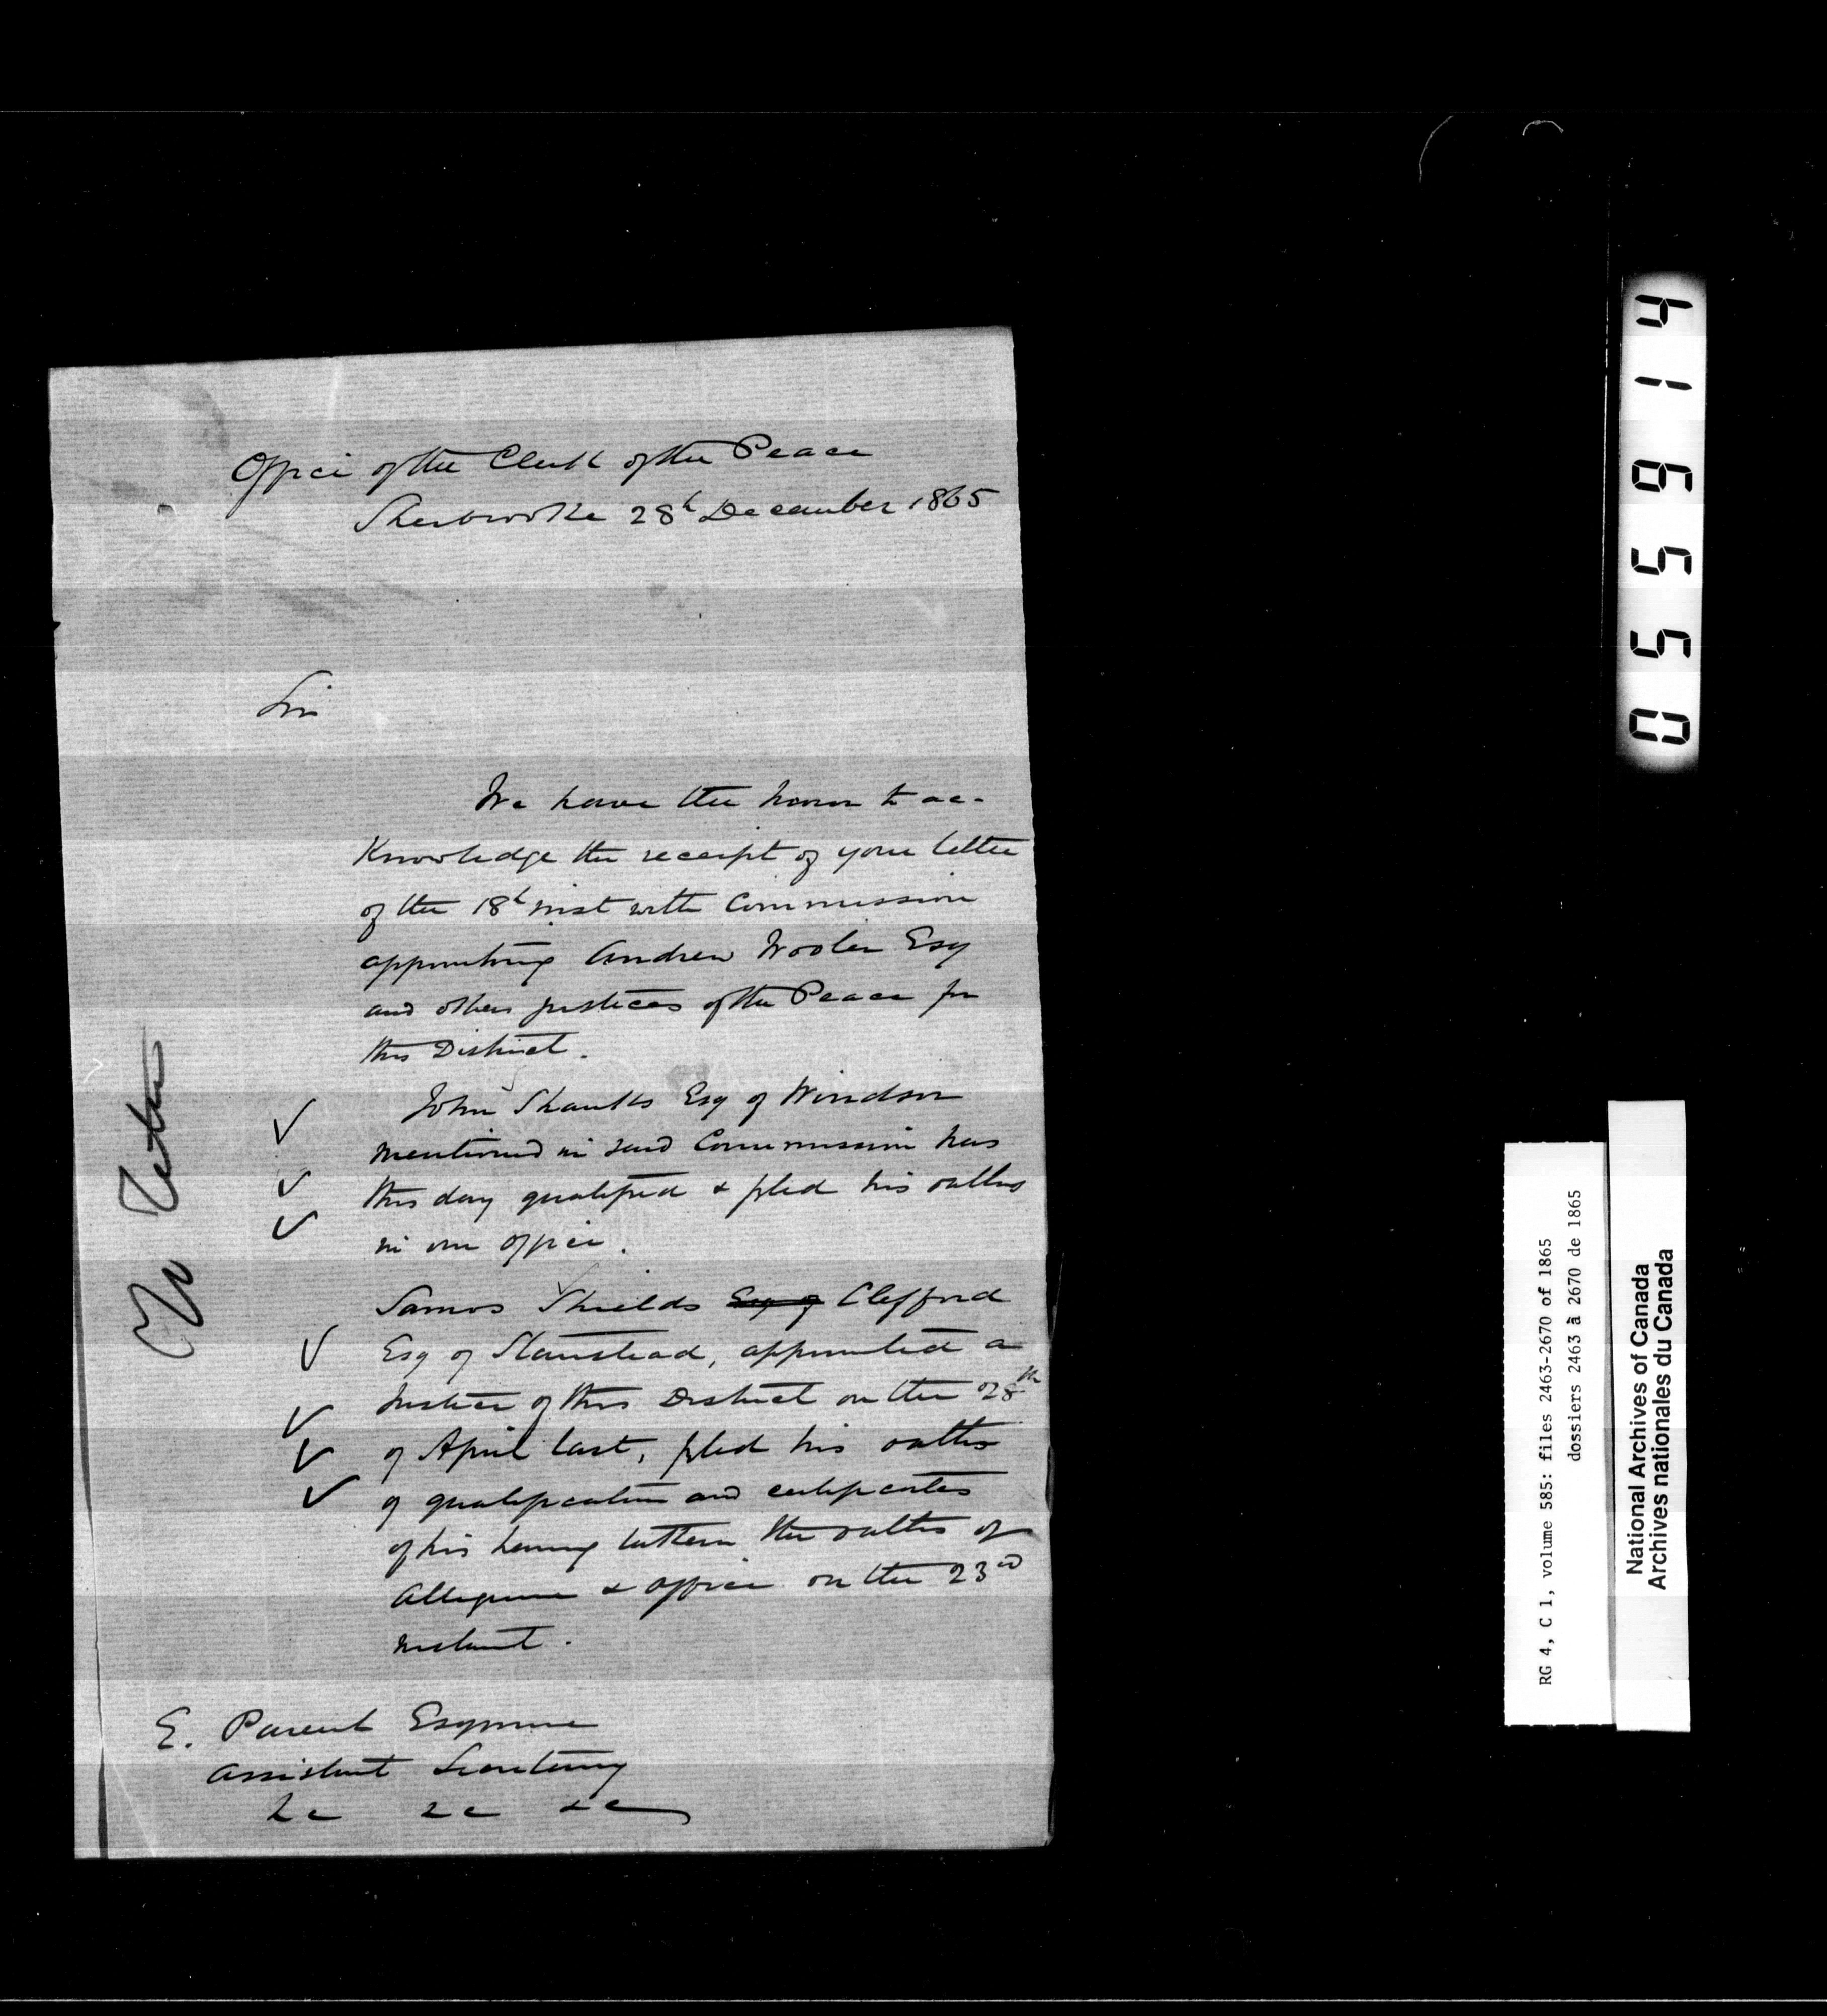 Office of the Clerk of the Peace
Sherbrooke 28th December 1865
Sir
We have the honor to ac-
knowledge the receipt of your letter
of the 18th inst with Commission
appointing Andrew Wooler Esq
and others Justices of the Peace for
this District.
John Shanks Esq of Windsor
mentioned in said Commission has
this day qualified & filed his oaths
in our office.
James Shields Esq of Clifford
Esq of Stanstead, appointed a
Justice of this District on the 28th
of April last, filed his oaths
of qualification and certificates
of his having taken the oaths of
Allegiance & office on the 23rd
instant.
E. Parent Esquire
Assistant Secretary
&c &c &c
055914
RG 4, C 1, volume 585: files 2463-2670 of 1865
dossiers 2463 à 2670 de 1865
National Archives of Canada
Archives nationales du Canada